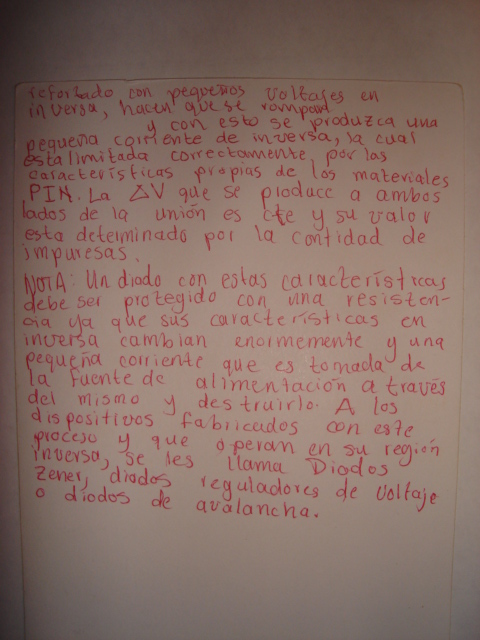 reforzado con pequeños voltajes en
inversa, hacen que se rompan
y con esto se produzca una
pequeña corriente de inversa, la cual
esta limitada correctamente, por las
características propias de los materiales
PIN. La ΔV que se produce a ambos
lados de la unión es cte y su valor
esta determinado por la contidad de
impuresas.
NOTA: Un diodo con estas características
debe ser protegido con una resisten-
cia ya que sus características en
inversa cambian enormemente y una
pequeña corriente que es tomada de
la fuente de alimentación a través
del mismo y destruirlo. A los
dispositivos fabricados con este
proceso y que operan en su región
inversa, se les llama Diodos
Zener, diodos reguladores de voltaje
o diodos de avalancha.